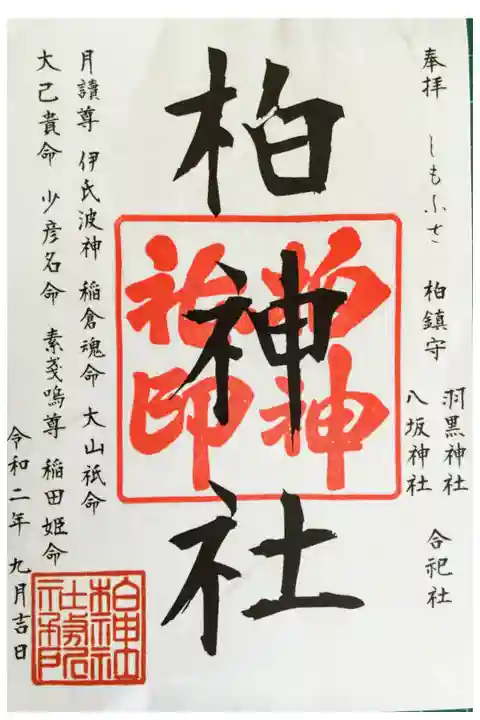 奉拝 しもふさ 柏鎮守 羽黒神社 八坂神社 合祀社
柏神社
柏神社印
月讀尊 伊氏波神 稲倉魂命 大山祇命
大己貴命 少彦名命 素戔嗚尊 稲田姫命
令和二年 九月吉日
柏神社社務所之印